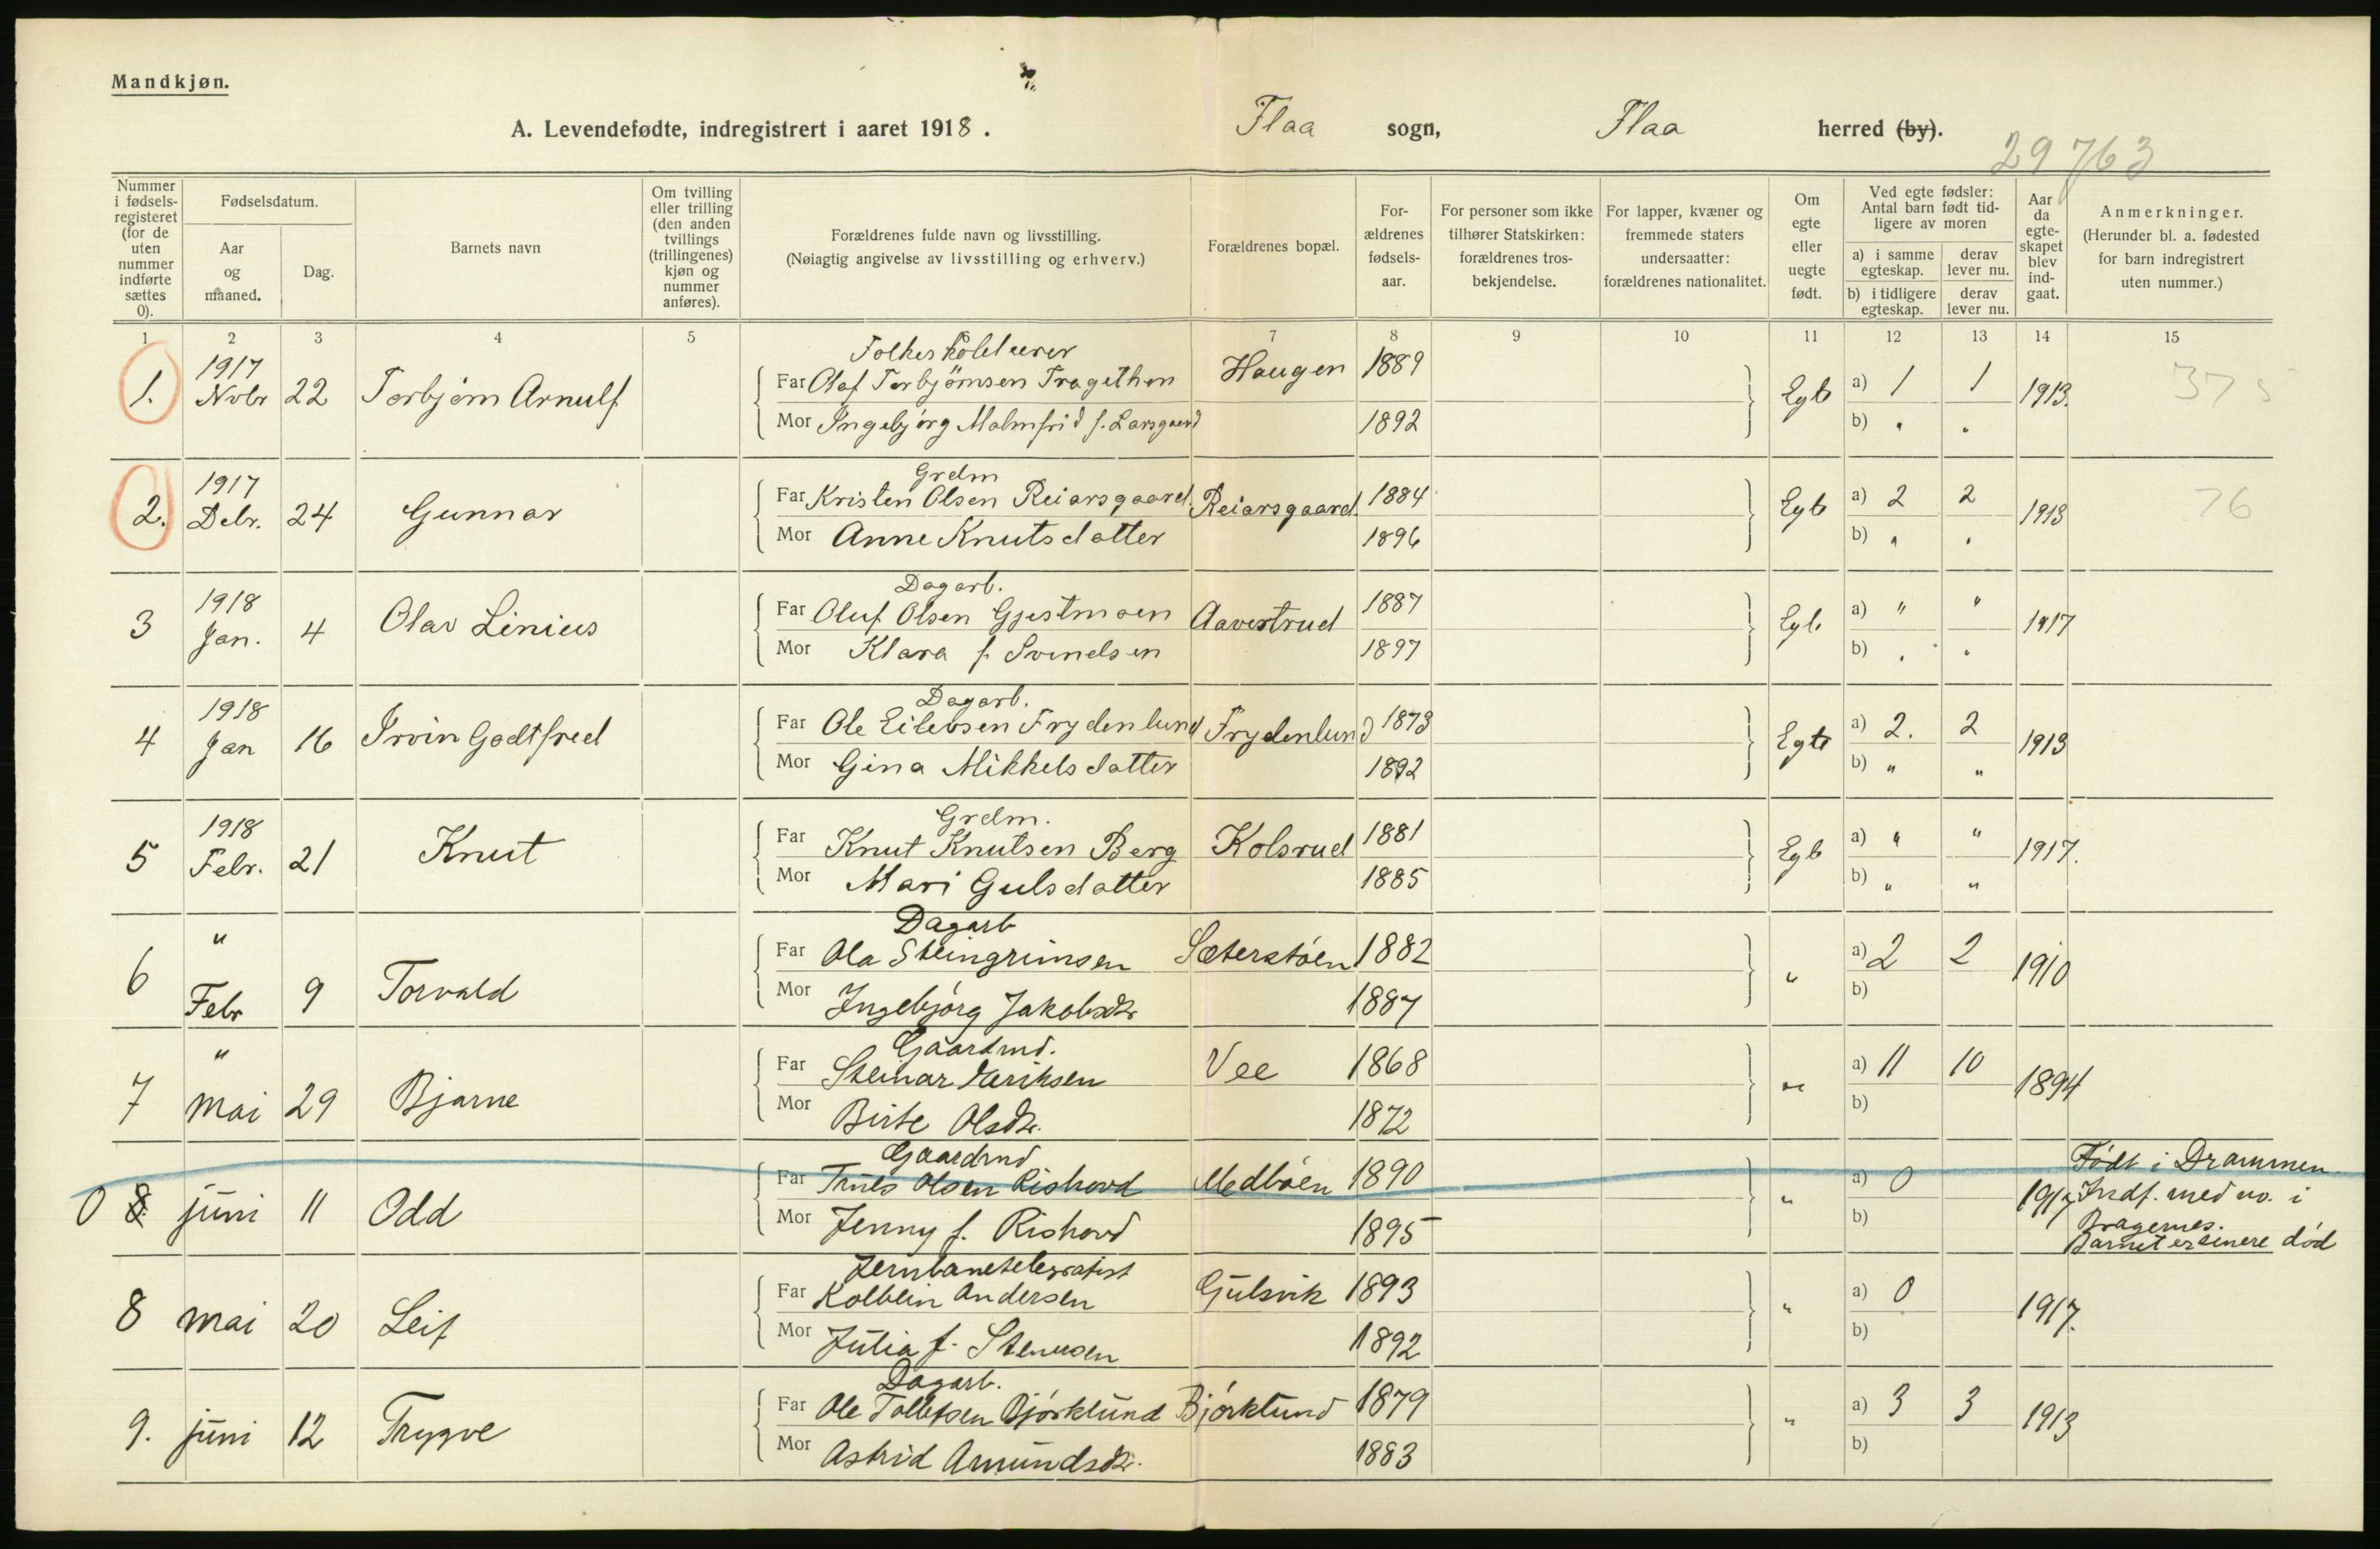 Mandkjøn.
A. Levendefødte, indregistrert i aaret 1918. Flaa sogn, Flaa herred (by).
29763
Nummer i fødsels-registeret (for de uten nummer indførte sættes 0).
Fødselsdatum.
Aar og maaned.
Dag.
Barnets navn
Om tvilling eller trilling (den anden tvillings (trillingenes) kjøn og nummer anføres).
Forældrenes fulde navn og livsstilling.
(Nøiagtig angivelse av livsstilling og erhverv.)
Forældrenes bopæl.
For-ældrenes fødsels-aar.
For personer som ikke tilhører Statskirken: forældrenes tros-bekjendelse.
For lapper, kvæner og fremmede staters undersaatter: forældrenes nationalitet.
Om egte eller uegte født.
Ved egte fødsler: Antal barn født tid-ligere av moren
a) i samme egteskap. derav lever nu.
b) i tidligere egteskap. derav lever nu.
Aar da egte-skapet blev ind-gaat.
Anmerkninger.
(Herunder bl. a. fødested for barn indregistrert uten nummer.)
1 2 3 4 5 7 8 9 10 11 12 13 14 15
Folkeskolelærer
1. 1917 Novbr 22 Torbjørn Arnulf Far Olaf Torbjörnsen Tragethon Haugen 1889 Egte a) 1 1 1913. 375
Mor Ingebjørg Malmfrid f. Larsgaard 1892 b) " "
Grdm
2. 1917 Debr. 24 Gunnar Far Kristen Olsen Reiarsgaard Reiarsgaard 1884 Egte a) 2 2 1913 76
Mor Anne Knutsdatter 1896 b) " "
Dagarb.
3 1918 Jan. 4 Olav Linius Far Oluf Olsen Gjestmoen Aavestrud 1887 Egte a) " " 1917
Mor Klara f. Svendsen 1897 b) " "
Dagarb.
4 1918 Jan 16 Irvin Godtfred Far Ole Eilevsen Frydenlund Frydenlund 1873 Egte a) 2. 2 1913
Mor Gina Mikkelsdatter 1892 b) " "
Grdm.
5 1918 Febr. 21 Knut Far Knut Knutsen Berg Kolsrud 1881 Egte a) " " 1917.
Mor Mari Gulsdatter 1885 b) " "
Dagarb
6 " Febr 9 Torvald Far Ola Steingrimsen Sæterstøen 1882 " a) 2 2 1910
Mor Ingebjörg Jakobsdtr 1887 b)
Gaardmd.
7 " mai 29 Bjarne Far Steinar Eriksen Vee 1868 " a) 11 10 1894
Mor Birte Olsdtr. 1872 b)
Gaardmd
0 8 juni 11 Odd Far Truls Olsen Rishovd Medbøen 1890 " a) 0 1917 Født i Drammen.
Indf. med no. i
Mor Jenny f. Rishovd 1895 b) Bragernes.
Barnet er senere død
Jernbanetelegrafist
8 mai 20 Leif Far Kolbein Andersen Gulsvik 1893 " a) 0 1917.
Mor Julia f. Stensen 1892 b)
Dagarb.
9. juni 12 Trygve Far Ole Tollefsen Björklund Björklund 1879 " a) 3 3 1913
Mor Astrid Amundsdtr. 1883 b)